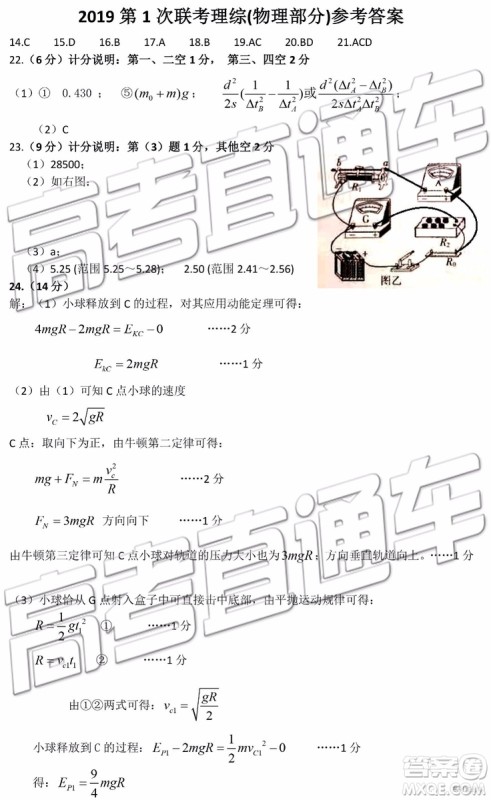 2019 第 1 次联考理综(物理部分)参考答案
14.C 15.D 16.B 17.A 18.B 19.AC 20.BD 21.ACD
22.（6 分）计分说明：第一、二空 1 分， 第三、四空 2 分
（1）① 0.430 ； ⑤(m₀ + m)g ； d²/2s (1/Δt_B² − 1/Δt_A²)或 d²(Δt_A² − Δt_B²)/2sΔt_A²Δt_B² ；
（2）C
23.（9 分）计分说明：第（3）题 1 分，其他空 2 分
（1）28500；
（2）如右图；
b a R₁ A
G
R₂
+ R₀
图乙
（3）a；
（4）5.25 (范围 5.25～5.28)； 2.50 (范围 2.41～2.56)
24.（14 分）
解：（1）小球释放到 C 的过程，对其应用动能定理可得：
4mgR − 2mgR = E_KC − 0 ……2 分
E_kC = 2mgR ……1 分
（2）由（1）可知 C 点小球的速度
v_C = 2√gR
C 点：取向下为正，由牛顿第二定律可得：
mg + F_N = m v_c²/R ……2 分
F_N = 3mgR 方向向下 ……1 分
由牛顿第三定律可知 C 点小球对轨道的压力大小也为 3mgR；方向垂直轨道向上。…1 分
（3）小球恰从 G 点射入盒子中可直接击中底部，由平抛运动规律可得：
R = 1/2 gt₁² ① ……1 分
R = v_c1 t₁ ② ……1 分
由①②两式可得：v_c1 = √(gR/2)
小球释放到 C 的过程：E_P1 − 2mgR = 1/2 mv_C1² − 0 ……1 分
得：E_P1 = 9/4 mgR
高考直通车
高考直通车
答案圈